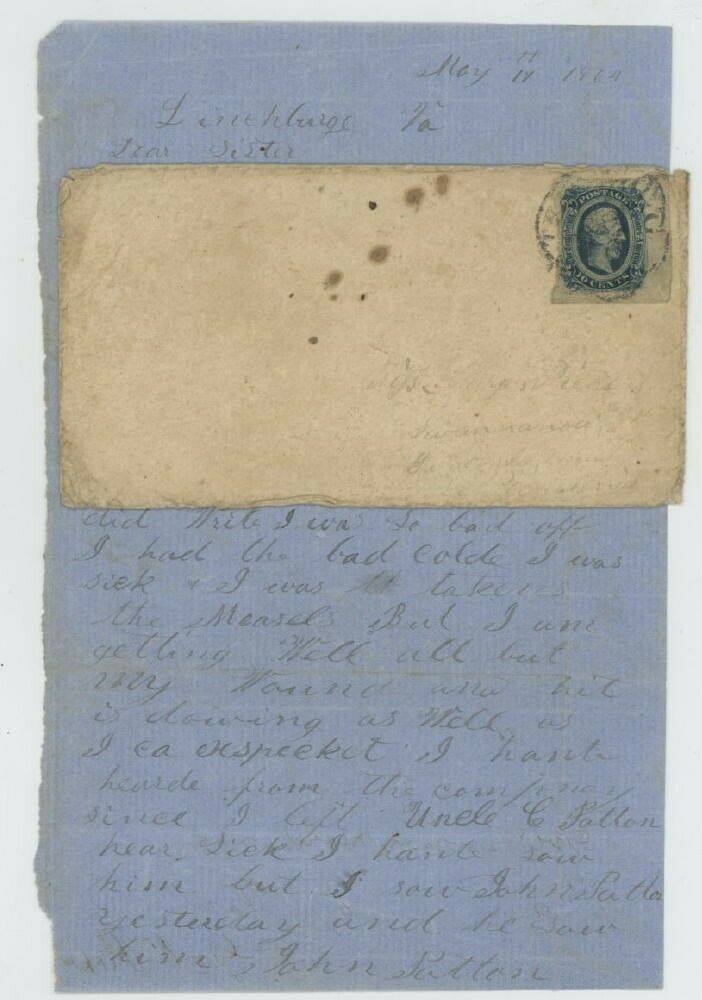 May 17 1864
Linchburge Va
Dear Sister
POSTAGE
10 CENTS
did Write I was So bad off
I had the bad Colde I was
sick & I was takens
the Measels But I am
getting Well all but
my Wound and hit
is dowing as Well as
I ca exspeckt I hante
hearde from the compney
since I left Uncle C Patton
hear Sick I hante saw
him but I saw John Patton
yesterday and he saw
him John Patton